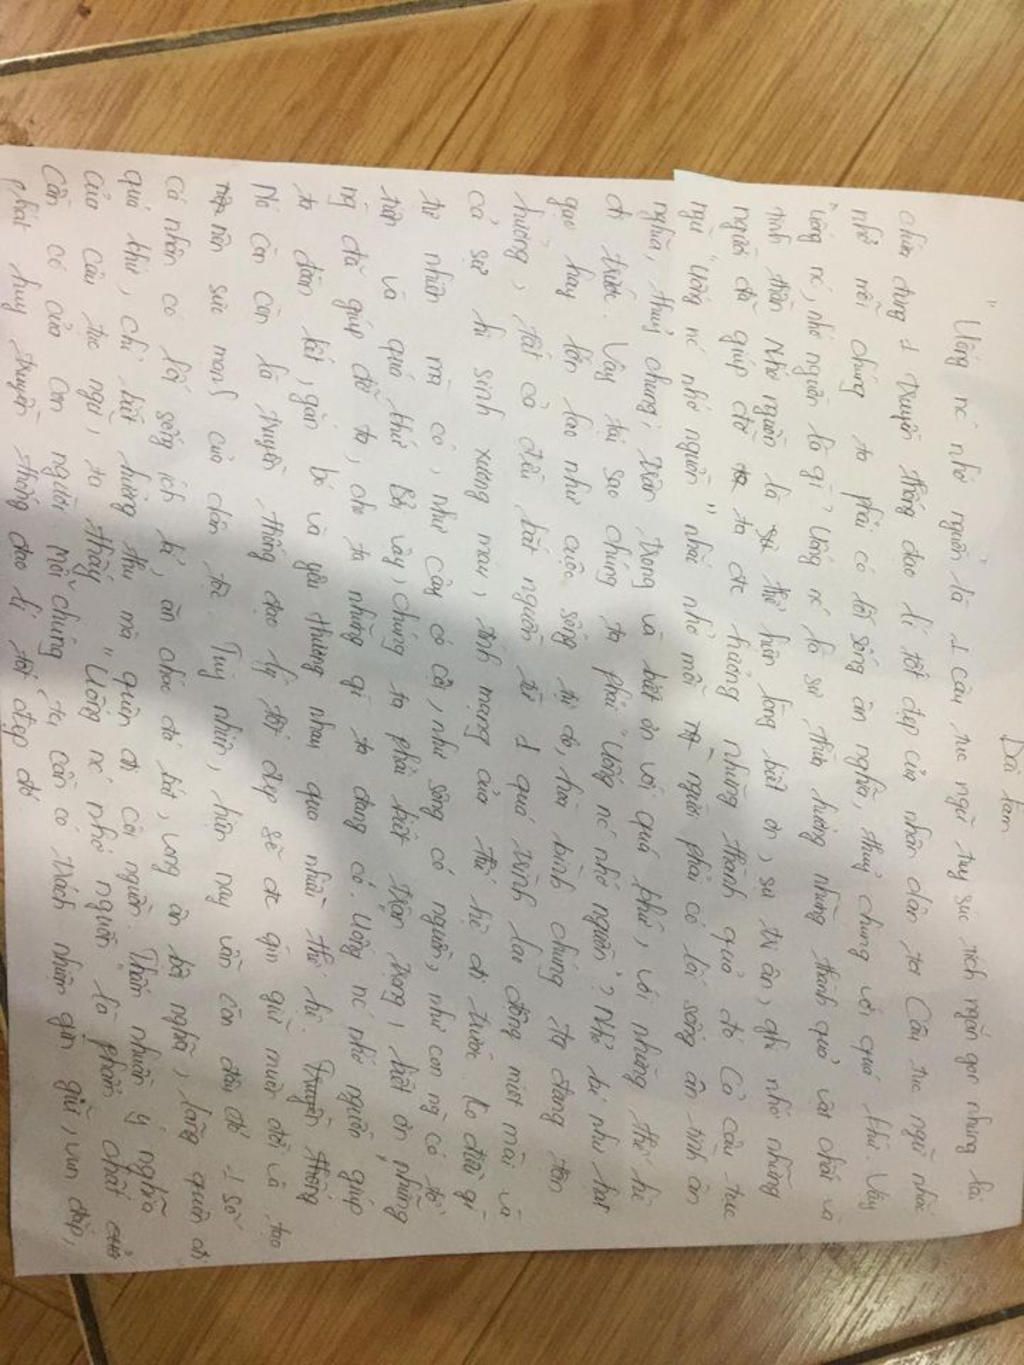 Bài làm
"Uống nc nhớ nguồn là 1 câu tục ngữ tuy súc tích ngắn gọn nhưng lại
chứa đựng 1 truyền thống đạo lí tốt đẹp của nhân dân ta. Câu tục ngữ nhắc
nhở mỗi chúng ta phải có lối sống ân nghĩa, thuỷ chung với quá khứ. Vậy
"uống nc, nhớ nguồn là gì? Uống nc là sự thừa hưởng những thành quả vật chất và
tinh thần. Nhớ nguồn là thể hiện lòng biết ơn, sự tri ân, ghi nhớ những
người đã giúp đỡ ta đc hưởng những thành quả đó. Cả câu tục
ngữ "Uống nc nhớ nguồn" nhắc nhở mỗi người phải có lối sống ân tình ân
nghĩa, thuỷ chung, trân trọng và biết ơn với quá khứ, với những thế hệ
đi trước. Vậy tại sao chúng ta phải "Uống nc nhớ nguồn"? Nhỏ bé như hạt
gạo hay lớn lao như cuộc sống tự do, hòa bình chúng ta đang tận
hưởng, tất cả đều bắt nguồn từ 1 quá trình lao động miệt mài và
cả sự hi sinh xương máu, tính mạng của thế hệ đi trước. Ko điều gì
tự nhiên mà có, như cây có cội, như sông có nguồn, như con ng có tổ
tiên và quá khứ. Bởi vậy, chúng ta phải biết trân trọng, biết ơn những
ng đã giúp đỡ ta, cho ta những gì ta đang có. Uống nc nhớ nguồn giúp
ta đoàn kết, gắn bó và yêu thương nhau qua nhiều thế hệ. Truyền thống
Nó còn là truyền thống đạo lý tốt đẹp sẽ đc gìn giữ muôn đời và tạo
nên sức mạnh của dân tộc. Tuy nhiên, hiện nay vẫn còn đâu đó 1 số
cá nhân có lối sống ích kỉ, ăn cháo đá bát, vong ân bội nghĩa, lãng quên đi
quá khứ, chỉ biết hưởng thụ mà quên đi cội nguồn. Thấm nhuần ý nghĩa
của câu tục ngữ, ta thấy "Uống nc nhớ nguồn là phẩm chất
cần có của con người. Mỗi chúng ta cần có trách nhiệm gìn giữ, vun đắp,
phát huy truyền thống đạo lí tốt đẹp đó.